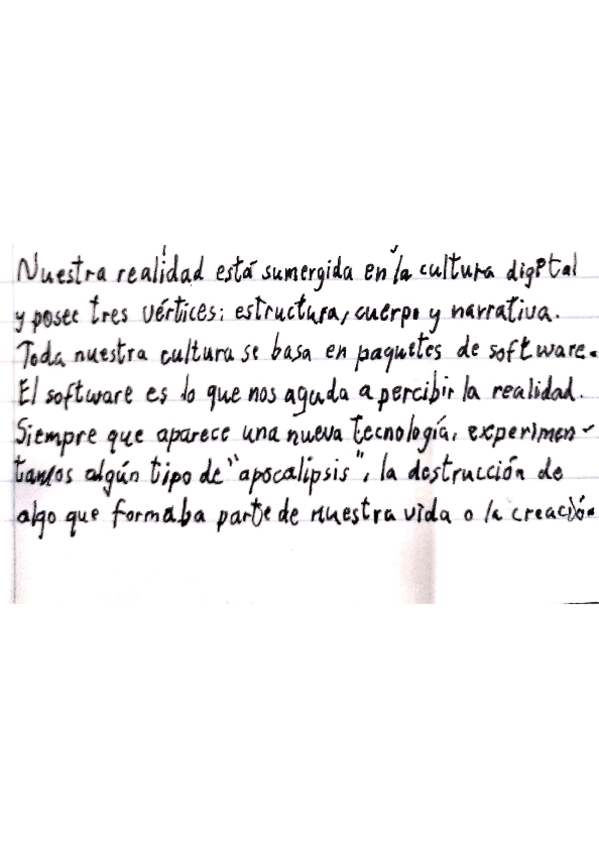 Nuestra realidad está sumergida en la cultura digital
y posee tres vértices: estructura, cuerpo y narrativa.
Toda nuestra cultura se basa en paquetes de software.
El software es lo que nos aguda a percibir la realidad.
Siempre que aparece una nueva tecnología, experimen-
tamos algún tipo de "apocalipsis", la destrucción de
algo que formaba parte de nuestra vida o la creación